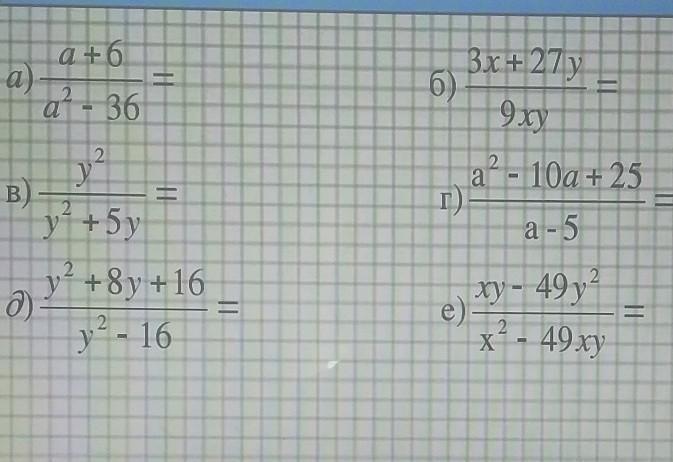 а) (a + 6)/(a² - 36) =
б) (3x + 27y)/(9xy) =
в) y²/(y² + 5y) =
г) (a² - 10a + 25)/(a - 5) =
д) (y² + 8y + 16)/(y² - 16) =
е) (xy - 49y²)/(x² - 49xy) =